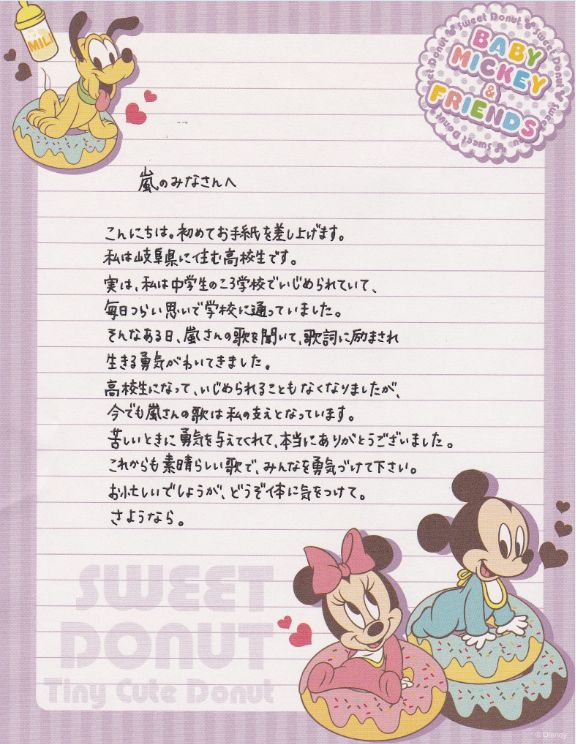 MILK
Sweet Donut
BABY
MICKEY
&
FRIENDS
嵐のみなさんへ
こんにちは。初めてお手紙を差し上げます。
私は岐阜県に住む高校生です。
実は、私は中学生のころ学校でいじめられていて、
毎日つらい思いで学校に通っていました。
そんなある日、嵐さんの歌を聞いて、歌詞に励まされ
生きる勇気がわいてきました。
高校生になって、いじめられることもなくなりましたが、
今でも嵐さんの歌は私の支えとなっています。
苦しいときに勇気を与えてくれて、本当にありがとうございました。
これからも素晴らしい歌で、みんなを勇気づけて下さい。
お忙しいでしょうが、どうぞ体に気をつけて。
さようなら。
SWEET
DONUT
Tiny Cute Donut
© Disney